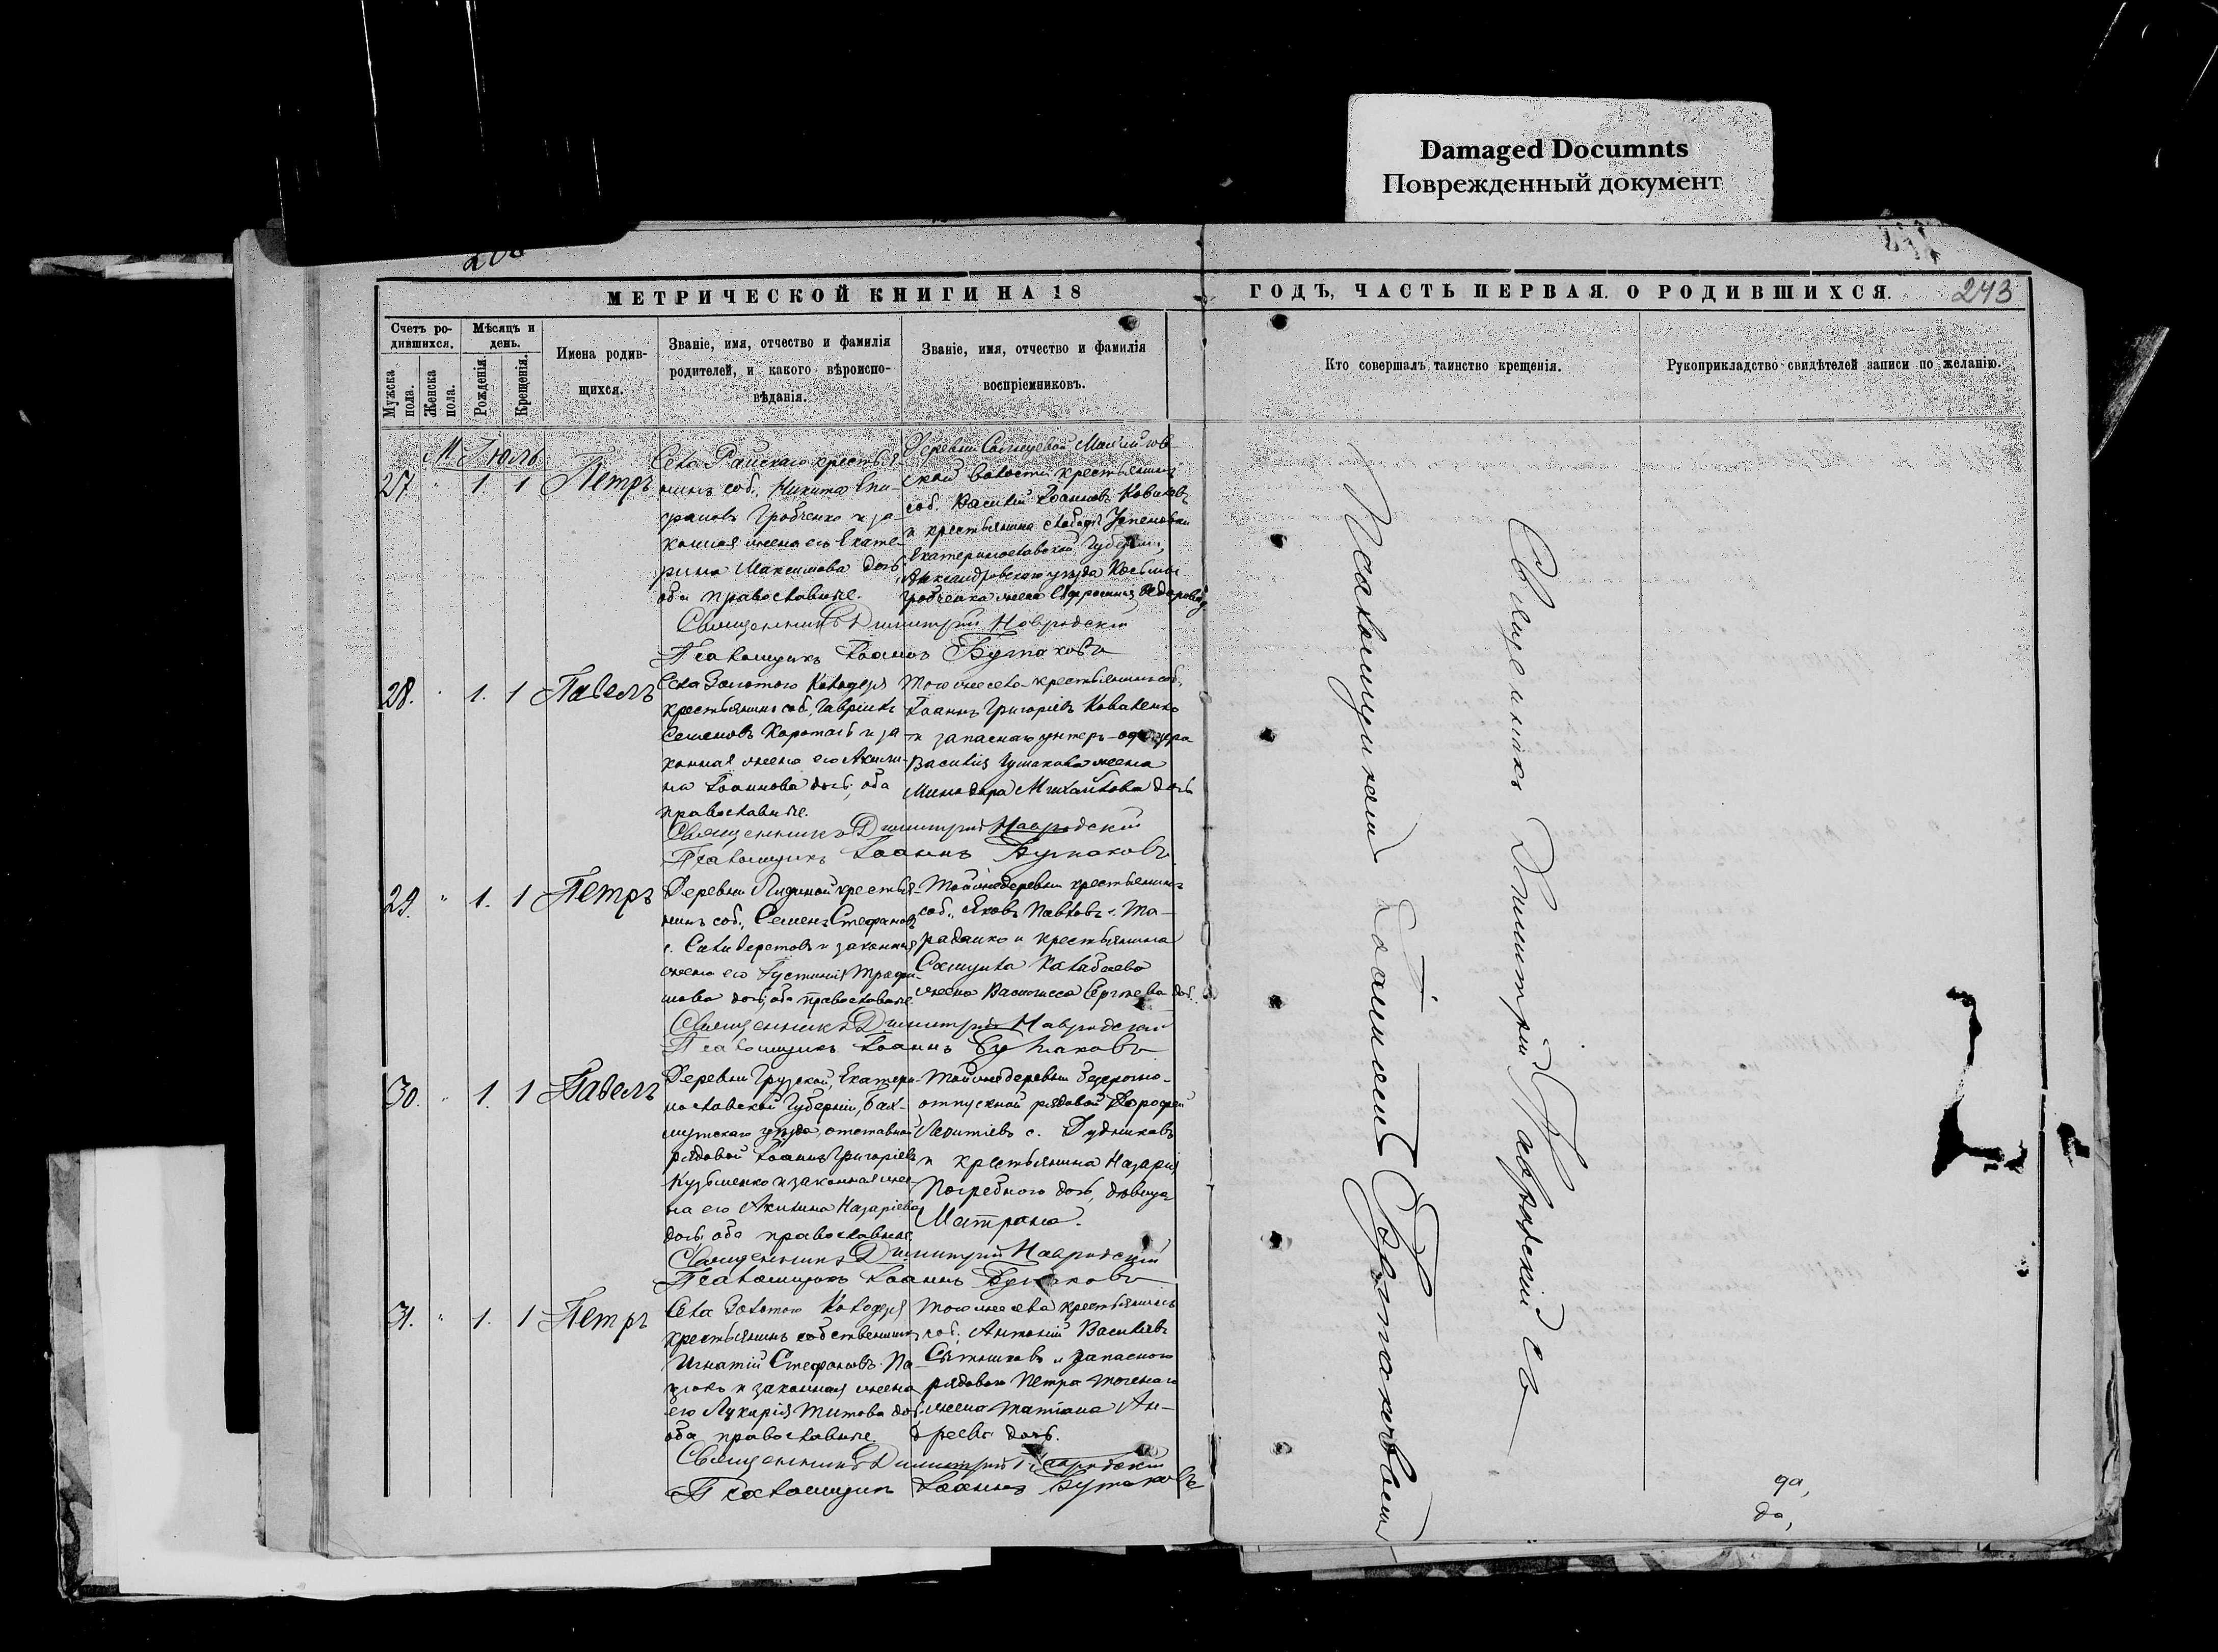 Damaged Documnts
Поврежденный документ
243
МЕТРИЧЕСКОЙ КНИГИ НА 18
ГОДЪ, ЧАСТЬ ПЕРВАЯ. О РОДИВШИХСЯ.
Счетъ ро-
дившихся.
Мужска пола.
Женска пола.
Мѣсяцъ и
день.
Рожденія.
Крещенія.
Имена родив-
щихся.
Званіе, имя, отчество и фамилія
родителей, и какого вѣроиспо-
вѣданія.
Званіе, имя, отчество и фамилія
воспріемниковъ.
Кто совершалъ таинство крещенія.
Рукоприкладство свидѣтелей записи по желанію.
М. Іюль
27 " 1. 1 Петръ
Села Райскаго крестья-
нинъ соб. Никита Епи-
фановъ Гробченко и за-
конная жена его Екате-
рина Максимова дочь
оба православные.
Деревни
ской волости крестьянинъ
соб. Василій Іоанновъ
и крестьянина слободы Успеновки
Екатеринославской Губерніи,
Александровскаго уѣзда Косьмы
Гробченка жена Евфросинія Ѳедорова
Священникъ Димитрій Навродскій
Псаломщикъ Іоаннъ Бутаковъ
28. " 1. 1 Павелъ
Села Золотого Колодезя
крестьянинъ соб. Гавріилъ
Семеновъ Коротась и за
конная жена его Акили-
на Іоаннова дочь; оба
православные.
Того же села крестьянинъ соб.
Іоаннъ Григоріевъ Коваленко
и запаснаго унтеръ-офицера
Василія жена
Минодора Михайлова дочь
Священникъ Димитрій Навродскій
Псаломщикъ Іоаннъ Бутаковъ
29. " 1. 1 Петръ
Деревни Лидиной крестья-
нинъ соб. Семенъ Стефановъ
с. Селиверстовъ и законная
жена его Іустинія Трофи-
мова дочь; оба православные
Той же деревни крестьянинъ
соб. Яковъ Павловъ с. Та-
и крестьянина
Самуила
жена Василисса Сергѣева доч.
Священникъ Димитрій Навродскій
Псаломщикъ Іоаннъ Бутаковъ
30. " 1. 1 Павелъ
Деревни Грузской, Екатери-
нославской Губерніи, Бах-
мутскаго уѣзда, отставной
рядовой Іоаннъ Григоріевъ
Кузьменко и законная же-
на его Акилина Назаріева
дочь; оба православные
Той же деревни безсрочно-
отпускной рядовой Дорофей
Леонтіевъ с. Дудниковъ
и крестьянина Назарія
Погребного дочь, дѣвица
Матрона.
Священникъ Димитрій Навродскій
Псаломщикъ Іоаннъ Бутаковъ
31. " 1. 1 Петръ
Села Золотого Колодезя
крестьянинъ собственникъ
Игнатій Стефановъ Па-
и законная жена
его Лукерія Титова доч.
оба православные.
Того же села крестьянинъ
соб. Антоній Василіевъ
Сытниковъ и запасного
рядового Петра
жена Татіана Ан-
дреева дочь.
Священникъ Димитрій Навродскій
Псаломщикъ Іоаннъ Бутаковъ
Священникъ Димитрій Навродскій съ
Псаломщикомъ Іоанномъ Бутаковымъ
да,